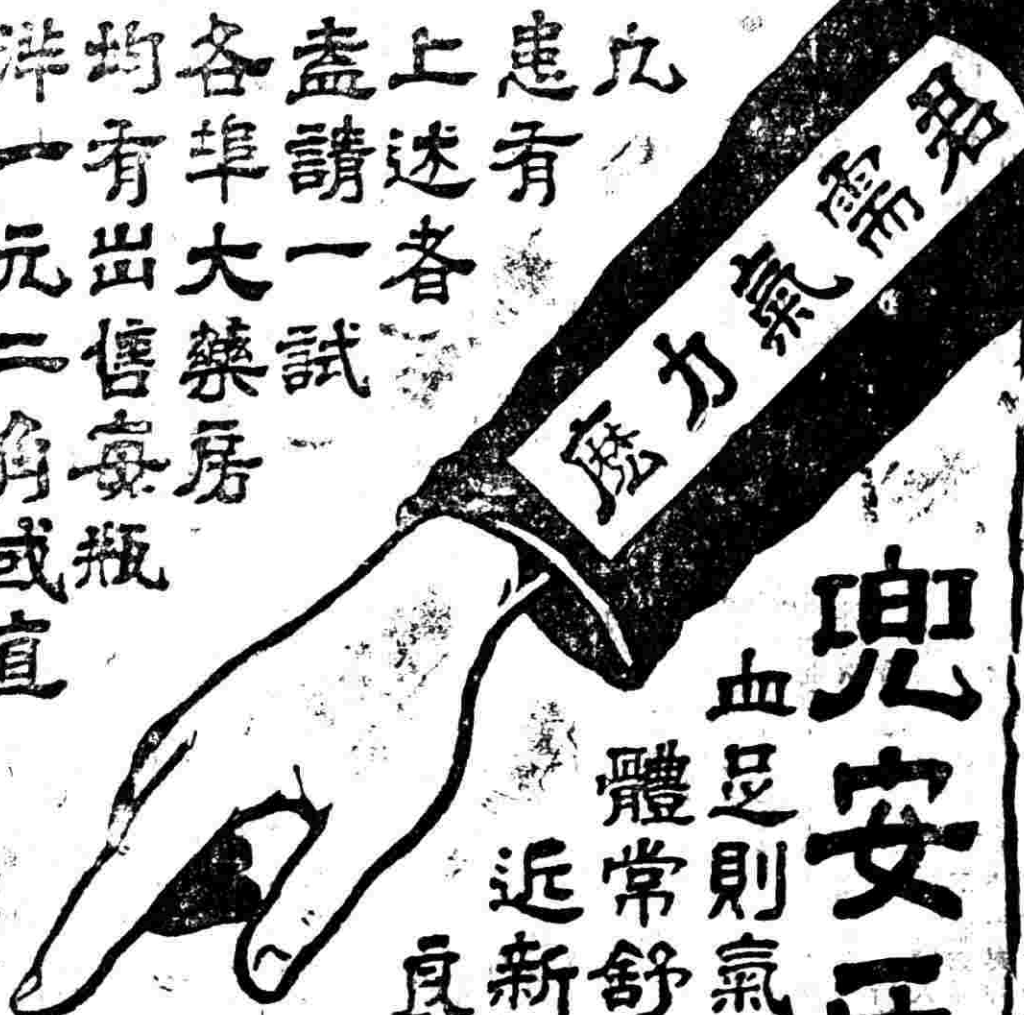 君需氣力麼
凡
患有
上述者
盍請一試
各埠大藥房
均有出售每瓶
洋一元二角或直
兜安
血足則氣
體常舒
近新